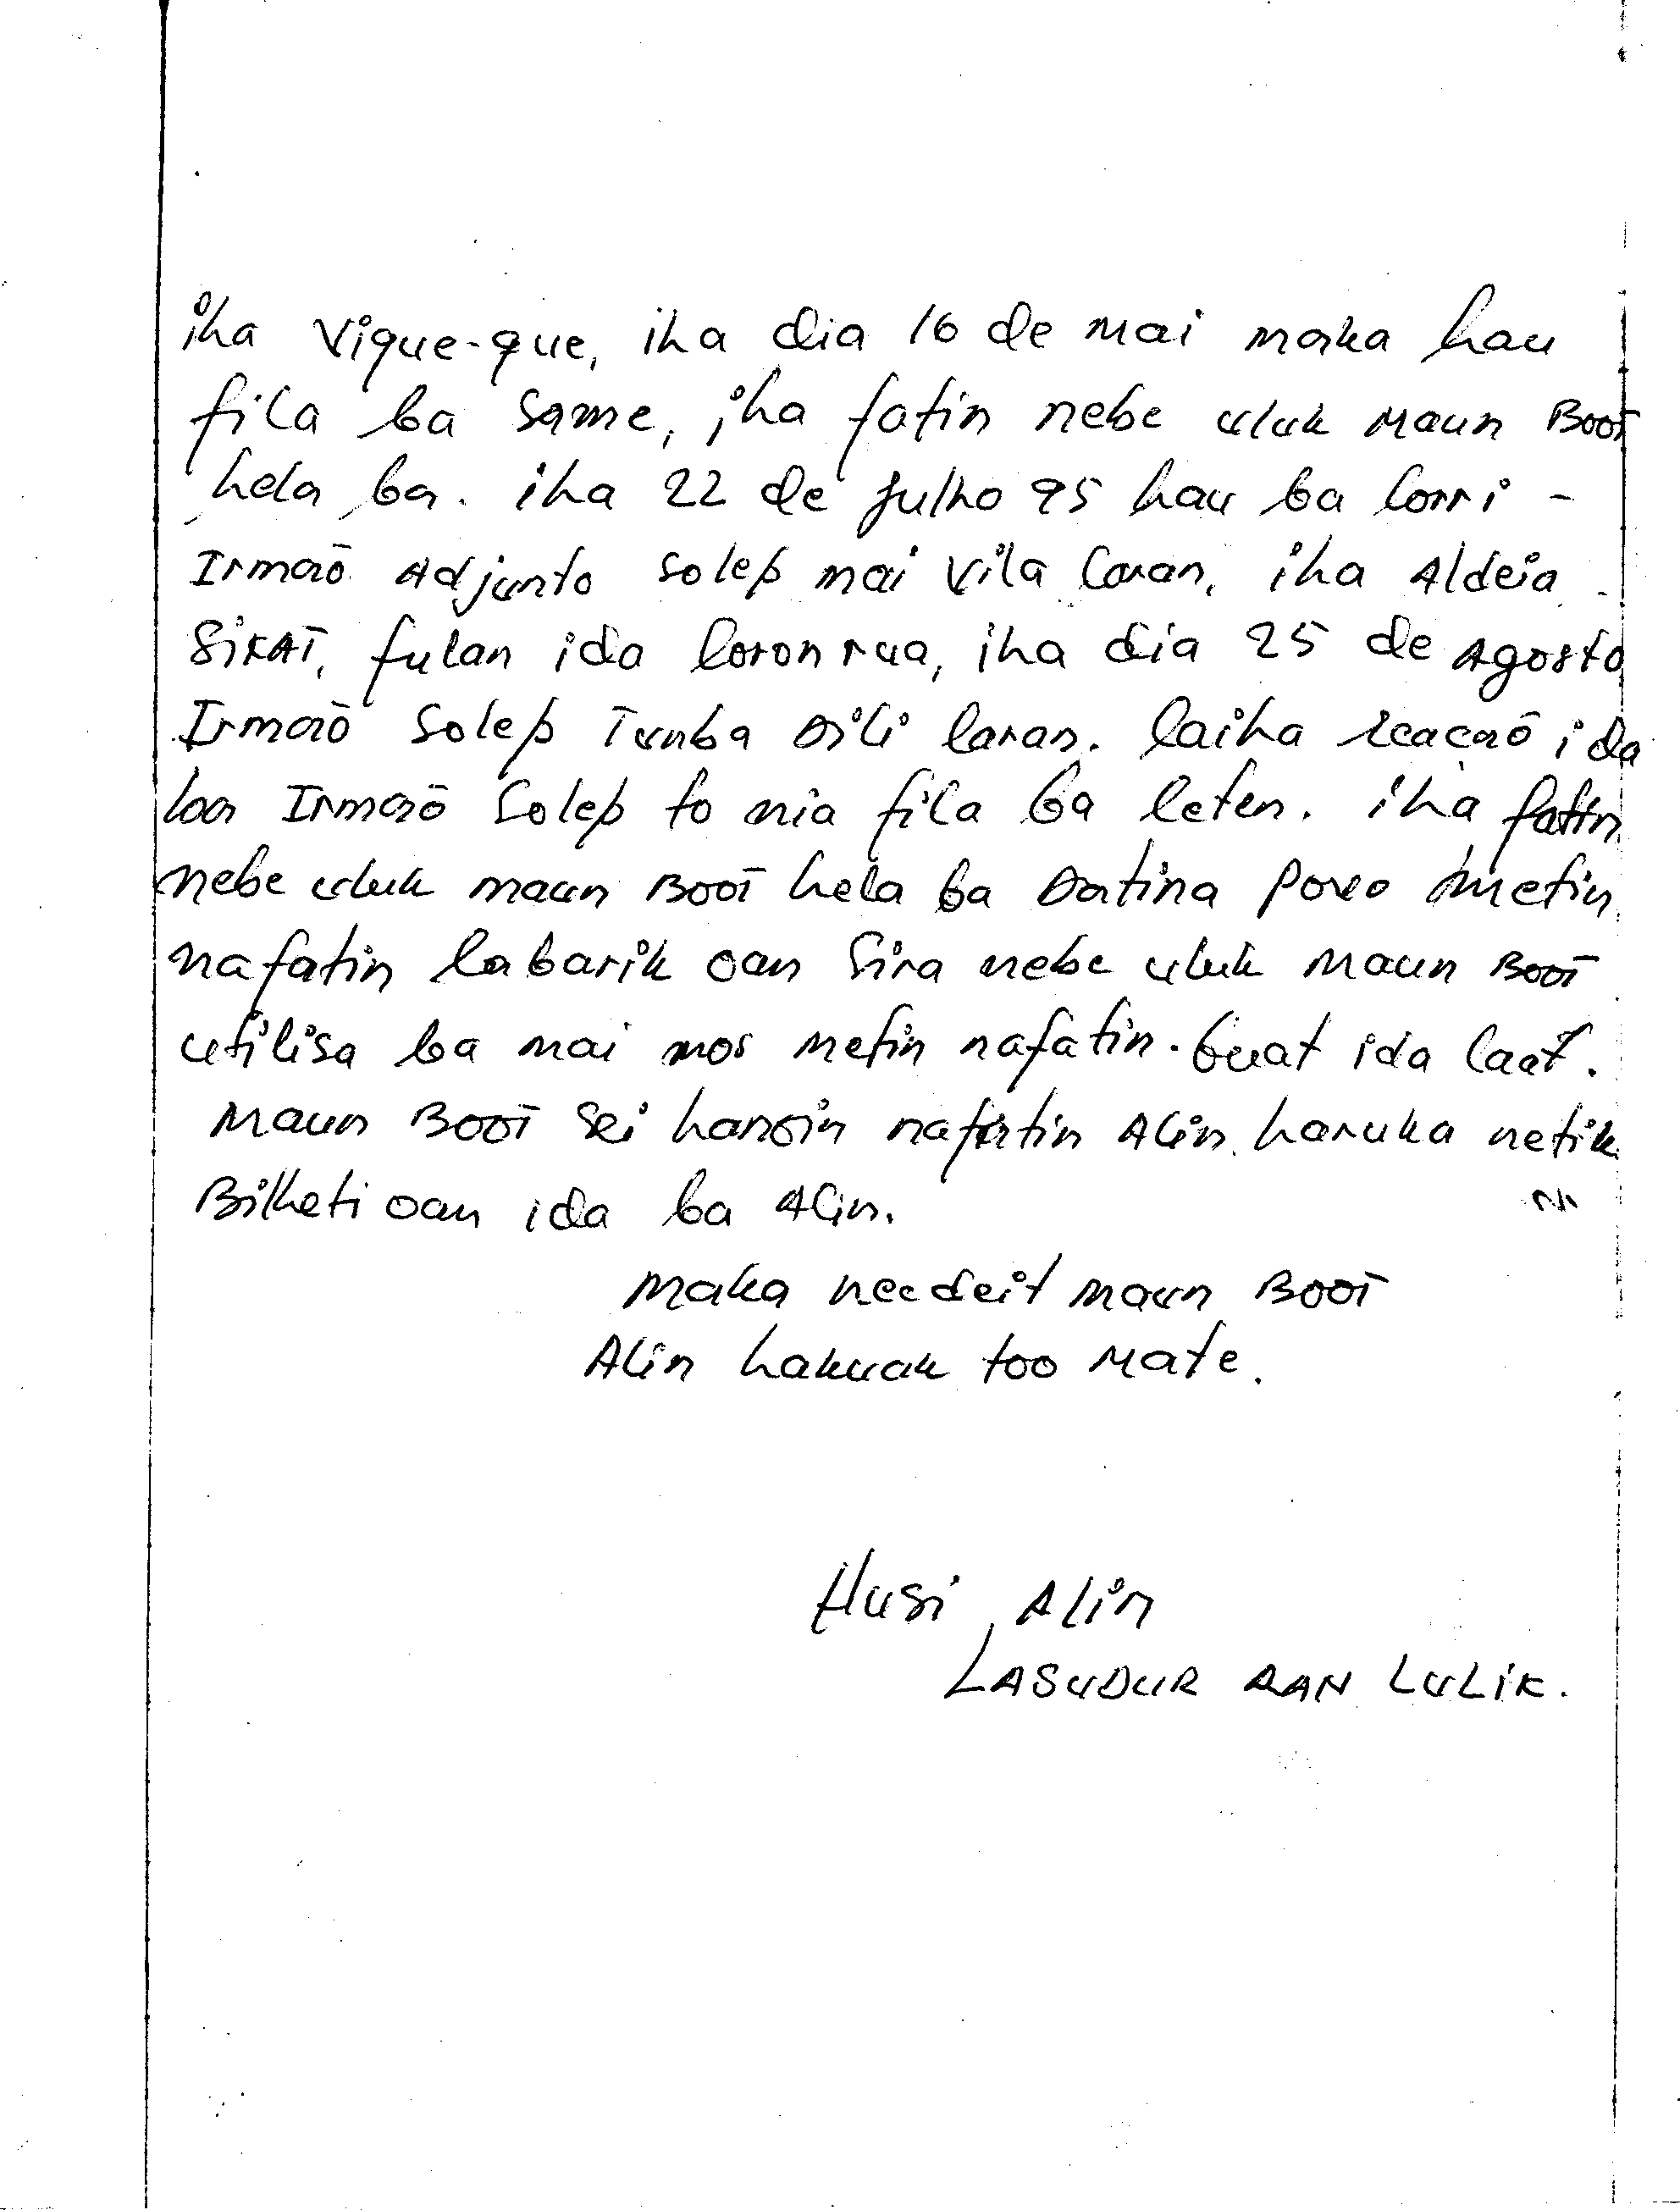 iha Vique-que, iha dia 16 de Mai maka hau
fila ba Same, iha fatin nebe uluk Maun Boot
hela ba. iha 22 de Julho 95 hau ba lorri -
Irmaõ Adjunto Solep mai Vila laran, iha Aldeia
SiKAT, fulan ida loron rua, iha dia 25 de Agosto
Irmaõ Solep Tunba Dili laran. laiha reacçaõ ida
Irmaõ Solep to nia fila ba leten. iha fatin
nebe uluk maun Boot hela ba Datina Povo metin
nafatin labarik oan Sira nebe uluk Maun Boot
utilisa ba mai mos metin nafatin. Buat ida laat.
Maun Boot Sei hanoin nafatin Alin. haruka netik
Bilheti oan ida ba Alin.
Maka needeit maun Boot
Alin hakuak too Mate.
Husi Alin
LASUDUR RAN LULIK.